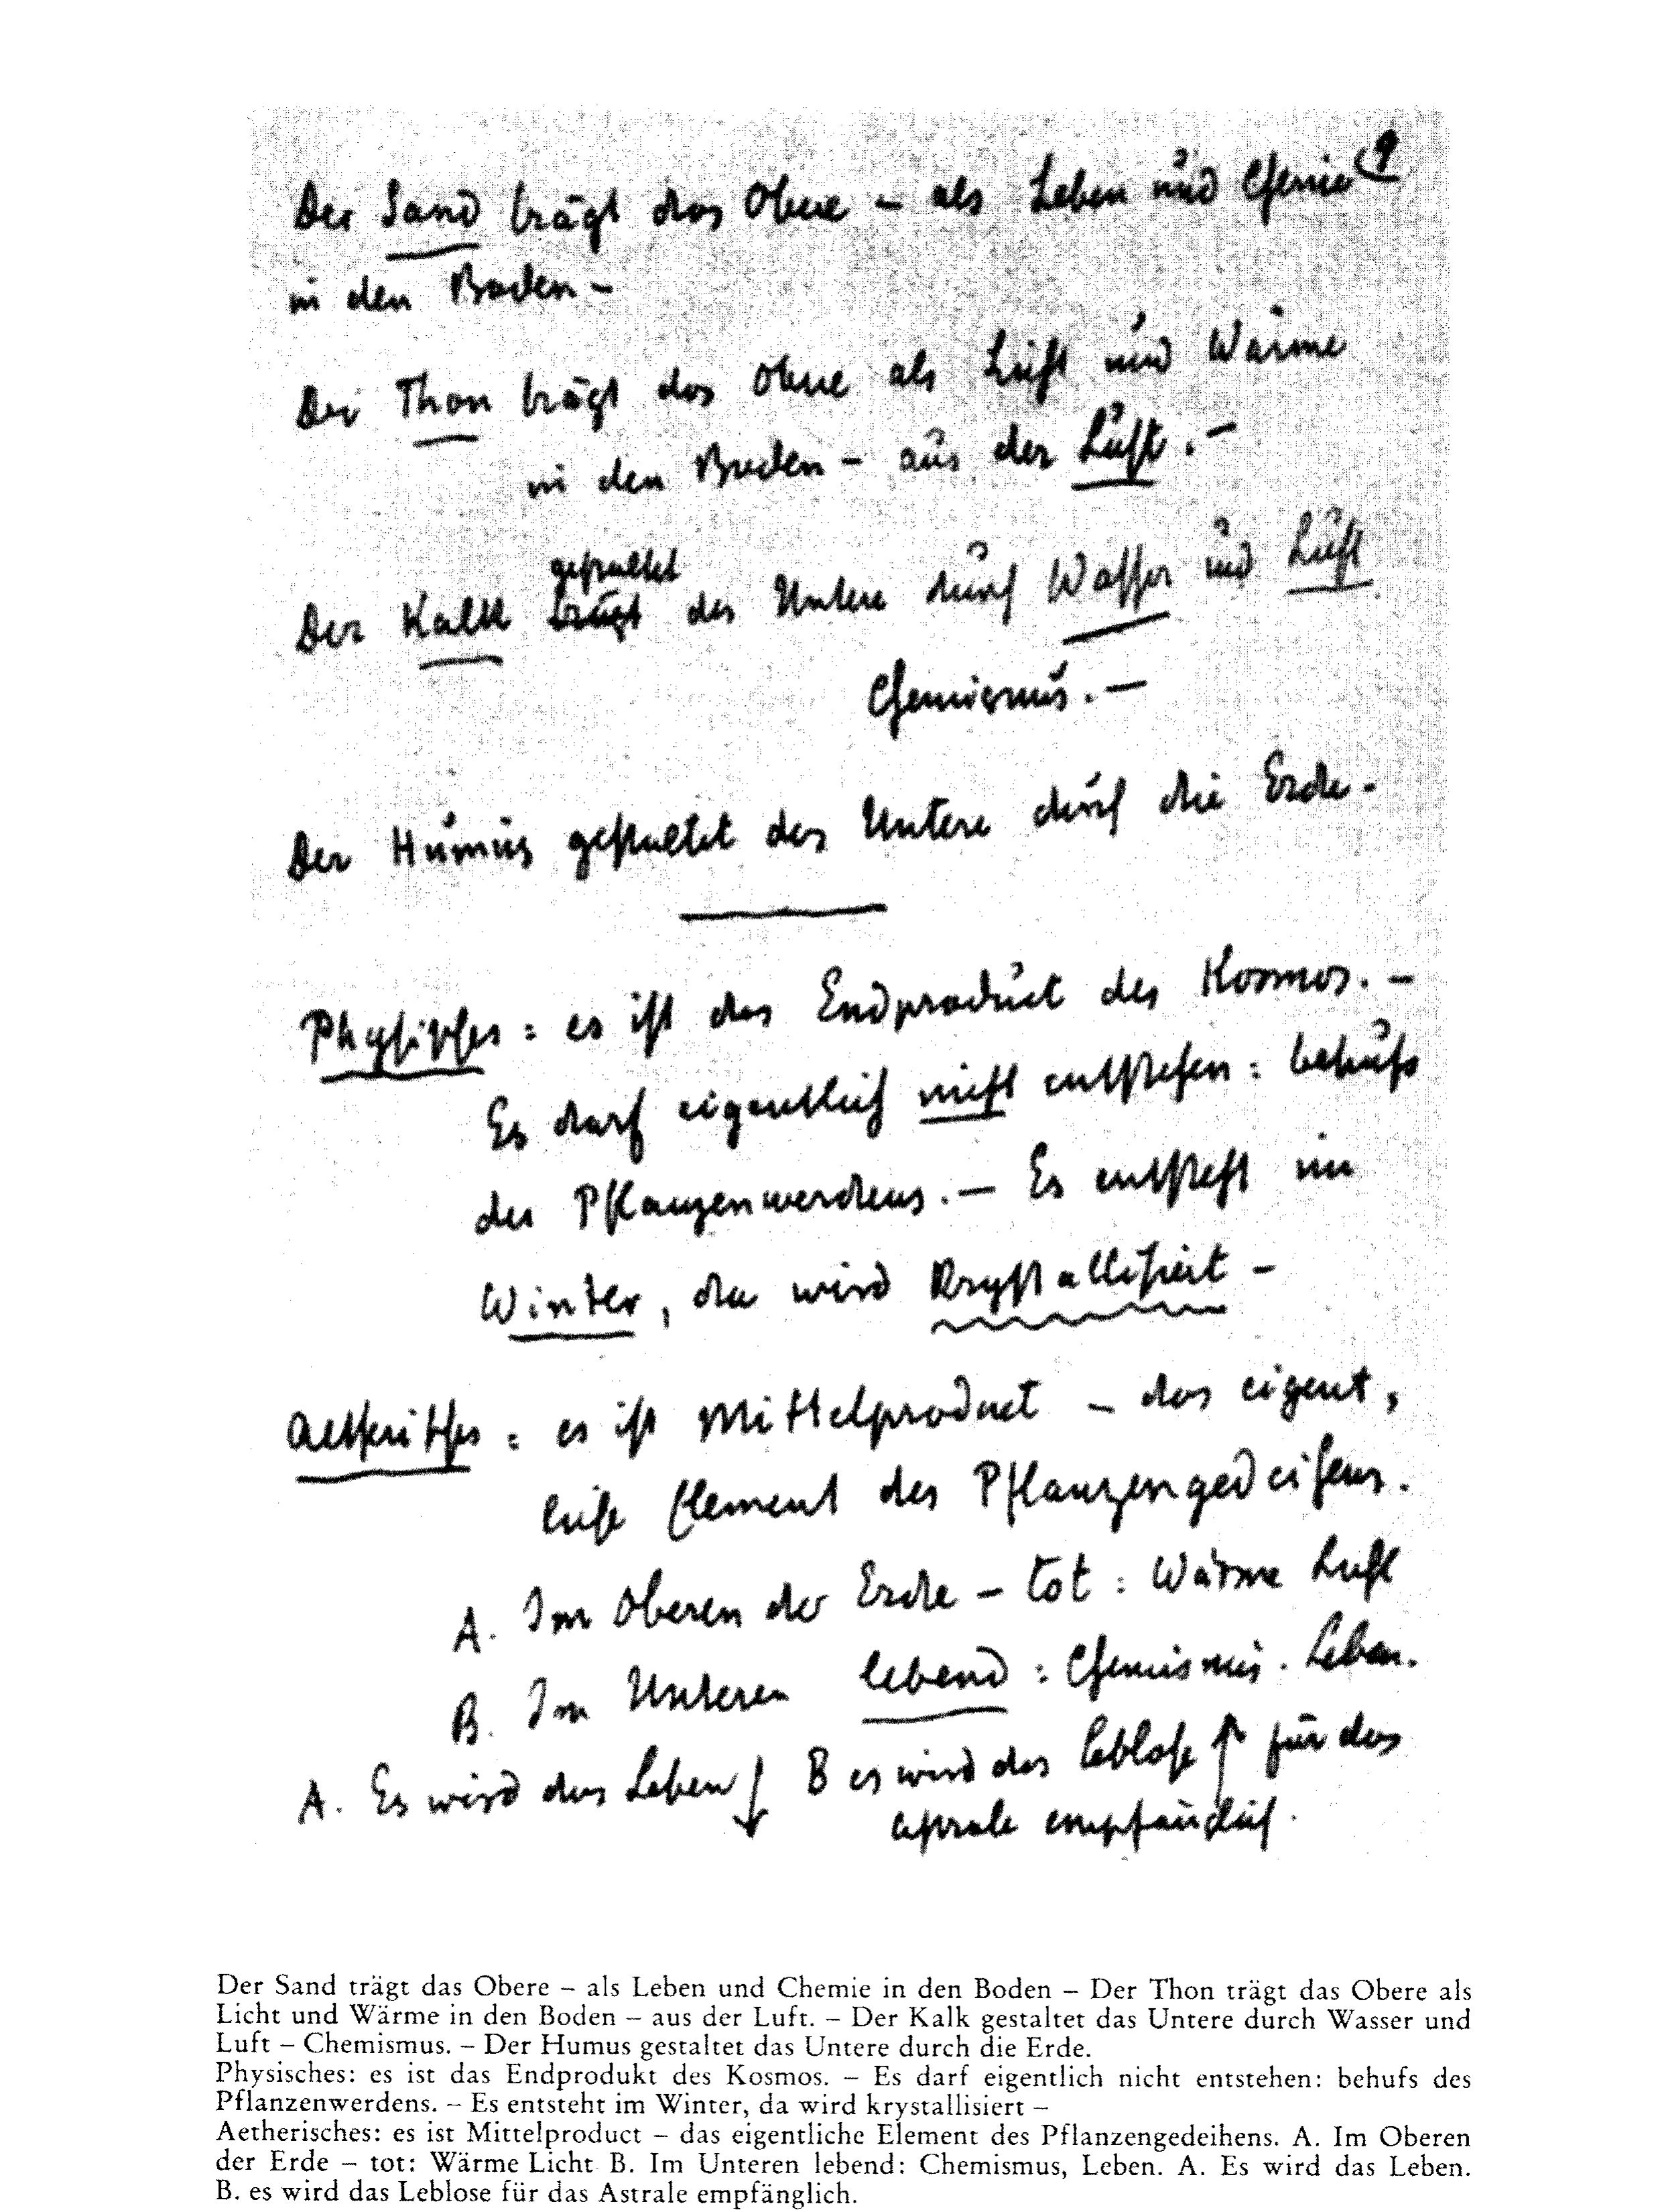 9
Der Sand trägt das Obere – als Leben und Chemie
in den Boden –
Der Thon trägt das Obere als Luft und Wärme
in den Boden – aus der Luft. –
gestaltet
Der Kalk trägt das Untere durch Wasser und Luft
Chemismus. –
Der Humus gestaltet das Untere durch die Erde.
Physisches: es ist das Endproduct des Kosmos. –
Es darf eigentlich nicht entstehen: behufs
des Pflanzenwerdens. – Es entsteht im
Winter, da wird krystallisiert –
Aetherisches: es ist Mittelproduct – das eigent,
liche Element des Pflanzengedeihens.
A. Im Oberen der Erde – tot: Wärme Luft
B. Im Unteren lebend: Chemismus. Leben.
A. Es wird das Leben ↓ B es wird das Leblose ↑ für das
astrale empfänglich.
Der Sand trägt das Obere – als Leben und Chemie in den Boden – Der Thon trägt das Obere als
Licht und Wärme in den Boden – aus der Luft. – Der Kalk gestaltet das Untere durch Wasser und
Luft – Chemismus. – Der Humus gestaltet das Untere durch die Erde.
Physisches: es ist das Endprodukt des Kosmos. – Es darf eigentlich nicht entstehen: behufs des
Pflanzenwerdens. – Es entsteht im Winter, da wird krystallisiert –
Aetherisches: es ist Mittelproduct – das eigentliche Element des Pflanzengedeihens. A. Im Oberen
der Erde – tot: Wärme Licht B. Im Unteren lebend: Chemismus, Leben. A. Es wird das Leben.
B. es wird das Leblose für das Astrale empfänglich.